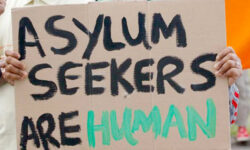 ASYLUM
SEEKERS
ARE HUMAN